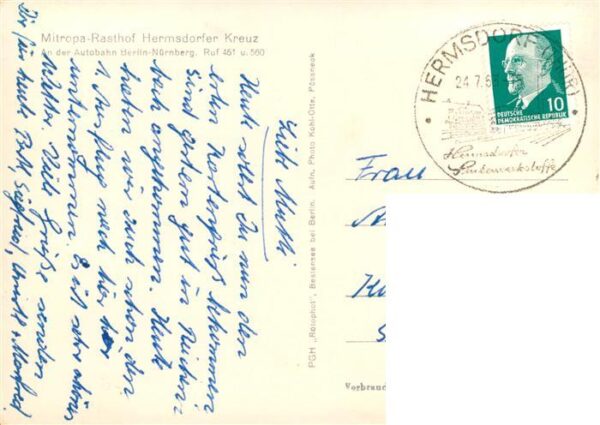 Mitropa-Rasthof Hermsdorfer Kreuz
An der Autobahn Berlin-Nürnberg. Ruf 461 u. 560
Gute Mutti
Heute sollst Du nun den
ersten Kartengruß bekommen
Sind gestern gut in
angekommen. Heute
haben wir auch schon den
1. Ausflug nach hier
unternommen. Es ist sehr schön
Grüße senden
Dir für heute Siegfried, + Manfred
PGH „Rotophot", Bestensee bei Berlin. Aufn. Photo Kohl-Otto, Pössneck
HERMSDORF (THÜR)
24.7.6
Hermsdorfer
Sinterwerkstoffe
DEUTSCHE
DEMOKRATISCHE REPUBLIK
10
Frau
Vorbrand